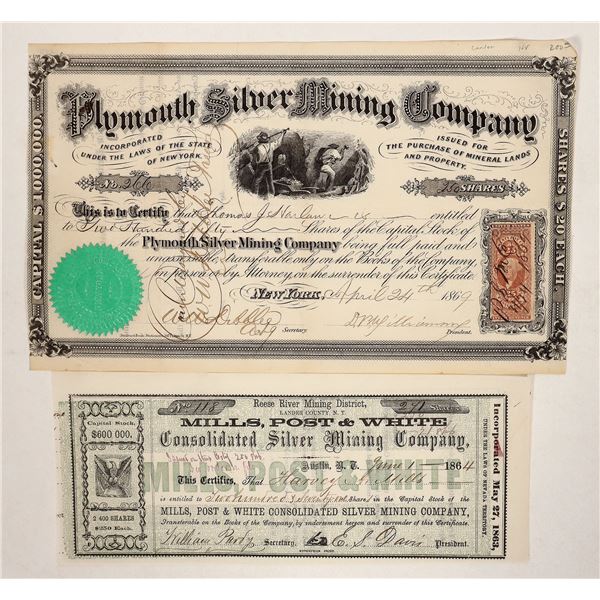 Lander NV 200
Plymouth Silver Mining Company
INCORPORATED
UNDER THE LAWS OF THE STATE
OF NEW YORK.
ISSUED FOR
THE PURCHASE OF MINERAL LANDS
AND PROPERTY.
No. 266
250 SHARES
CAPITAL $1,000,000.
SHARES $20 EACH.
This is to Certify that Thomas J. is entitled
to Two Hundred Fifty Shares of the Capital Stock of the
Plymouth Silver Mining Company being full paid and
unassessable, transferable only on the Books of the Company,
in person or by Attorney, on the surrender of this Certificate.
NEW YORK, April 24th 1869
Secretary.
President.
Reese River Mining District,
LANDER COUNTY, N. T.
No. 118
271 Shares
MILLS, POST & WHITE
Consolidated Silver Mining Company,
Capital Stock,
$600 000.
2 400 SHARES
$250 Each.
Austin, N. T. June 1 1864
This Certifies, That Harvey Mills
is entitled to Two hundred & Seventy one Shares, in the Capital Stock of the
MILLS, POST & WHITE CONSOLIDATED SILVER MINING COMPANY,
Transferable on the Books of the Company, by endorsement hereon and surrender of this Certificate.
Secretary.
E. S. Davis President.
Incorporated May 27, 1863,
UNDER THE LAWS OF NEVADA TERRITORY.